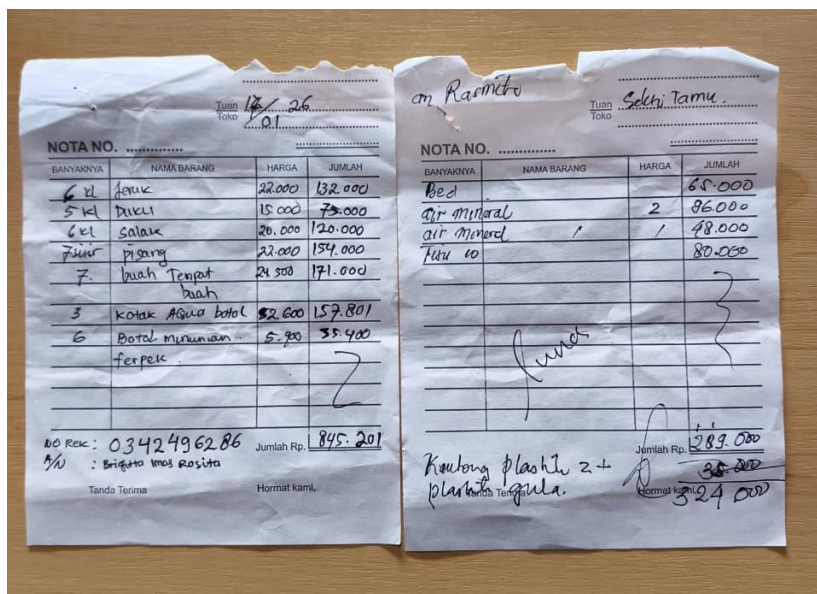 Tuan 17/ 26
Toko 01
NOTA NO. ..............
BANYAKNYA NAMA BARANG HARGA JUMLAH
6 kl Jeruk 22.000 132.000
5 kl Duku 15.000 75.000
6 kl Salak 20.000 120.000
7 sisir pisang 22.000 154.000
7. buah Tempat 24.500 171.000
buah
3 Kotak AQua botol 52.600 157.801
6 Botol minuman 5.900 35.400
ferpek
NO Rek : 0342496286 Jumlah Rp. 845.201
A/N : Brigitta Imas Rosita
Tanda Terima Hormat kami,
an Rasmito
Tuan Sekhi Tamu.
Toko
NOTA NO. ..............
BANYAKNYA NAMA BARANG HARGA JUMLAH
65.000
air mineral 2 96.000
air mineral 1 48.000
10 80.000
Jumlah Rp. 289.000
Kantong plastik 2 + 35.000
plastik gula.
Tanda Terima Hormat kami,
324 000